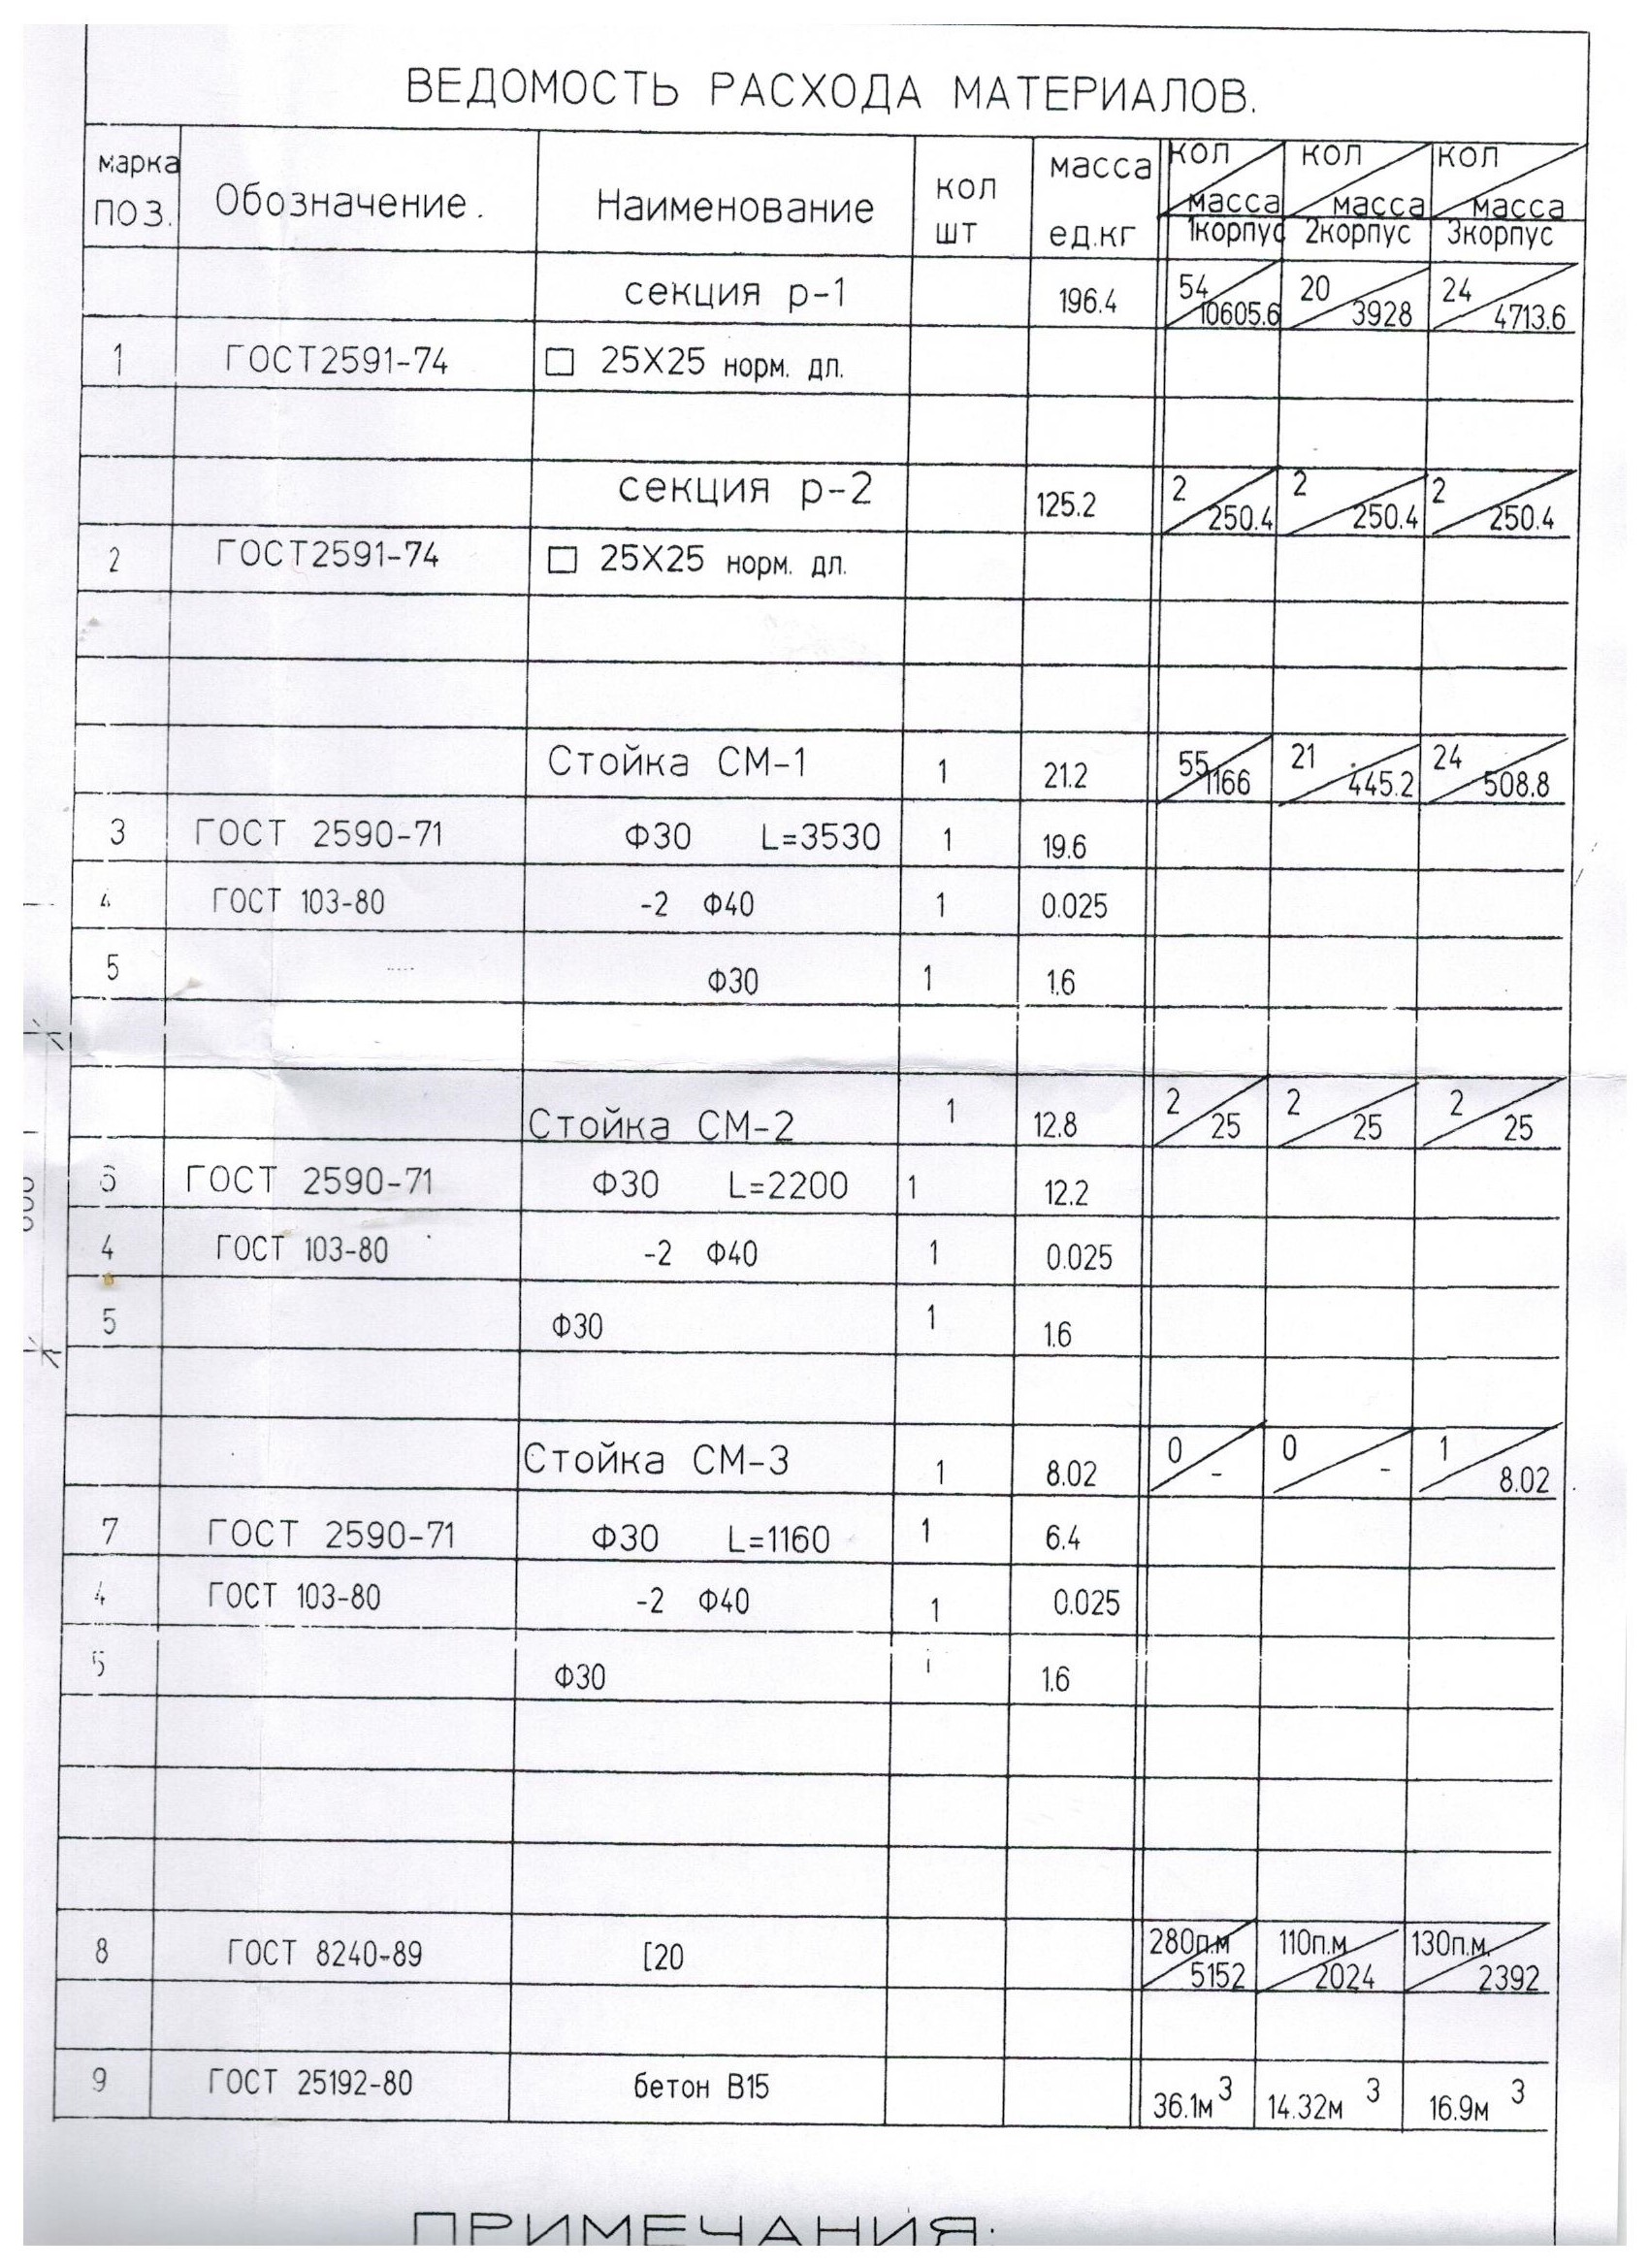 ВЕДОМОСТЬ РАСХОДА МАТЕРИАЛОВ.
марка ПОЗ. Обозначение. Наименование кол шт масса ед.кг кол масса 1корпус кол масса 2корпус кол масса 3корпус
секция р-1 196.4 54 10605.6 20 3928 24 4713.6
1 ГОСТ2591-74 □ 25Х25 норм. дл.
секция р-2 125.2 2 250.4 2 250.4 2 250.4
2 ГОСТ2591-74 □ 25Х25 норм. дл.
Стойка СМ-1 1 21.2 55 1166 21 445.2 24 508.8
3 ГОСТ 2590-71 Ф30 L=3530 1 19.6
4 ГОСТ 103-80 -2 Ф40 1 0.025
5 Ф30 1 1.6
Стойка СМ-2 1 12.8 2 25 2 25 2 25
6 ГОСТ 2590-71 Ф30 L=2200 1 12.2
4 ГОСТ 103-80 -2 Ф40 1 0.025
5 Ф30 1 1.6
Стойка СМ-3 1 8.02 0 - 0 - 1 8.02
7 ГОСТ 2590-71 Ф30 L=1160 1 6.4
4 ГОСТ 103-80 -2 Ф40 1 0.025
5 Ф30 1 1.6
8 ГОСТ 8240-89 [20 280п.м 5152 110п.м 2024 130п.м. 2392
9 ГОСТ 25192-80 бетон В15 36.1м3 14.32м 3 16.9м 3
ПРИМЕЧАНИЯ: